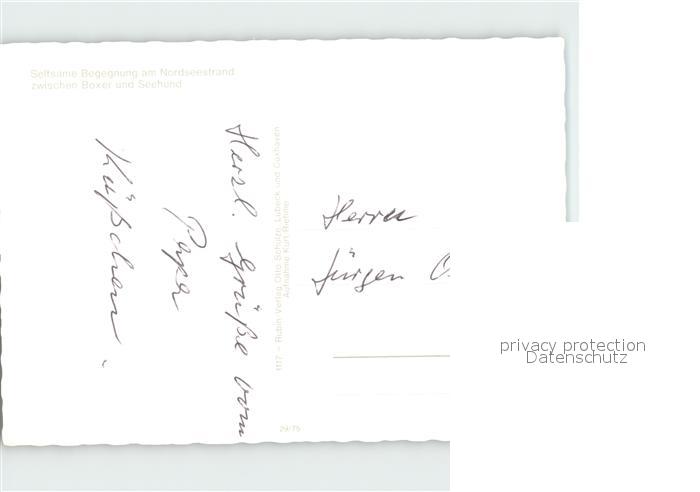 Seltsame Begegnung am Nordseestrand
zwischen Boxer und Seehund
Herzl. Grüße vom
Papa
Küßchen.
1117 - Rubin Verlag Otto Schütze, Lübeck und Cuxhaven
Aufnahme Kurt Riehme
29/75
Herrn
Jürgen
privacy protection
Datenschutz